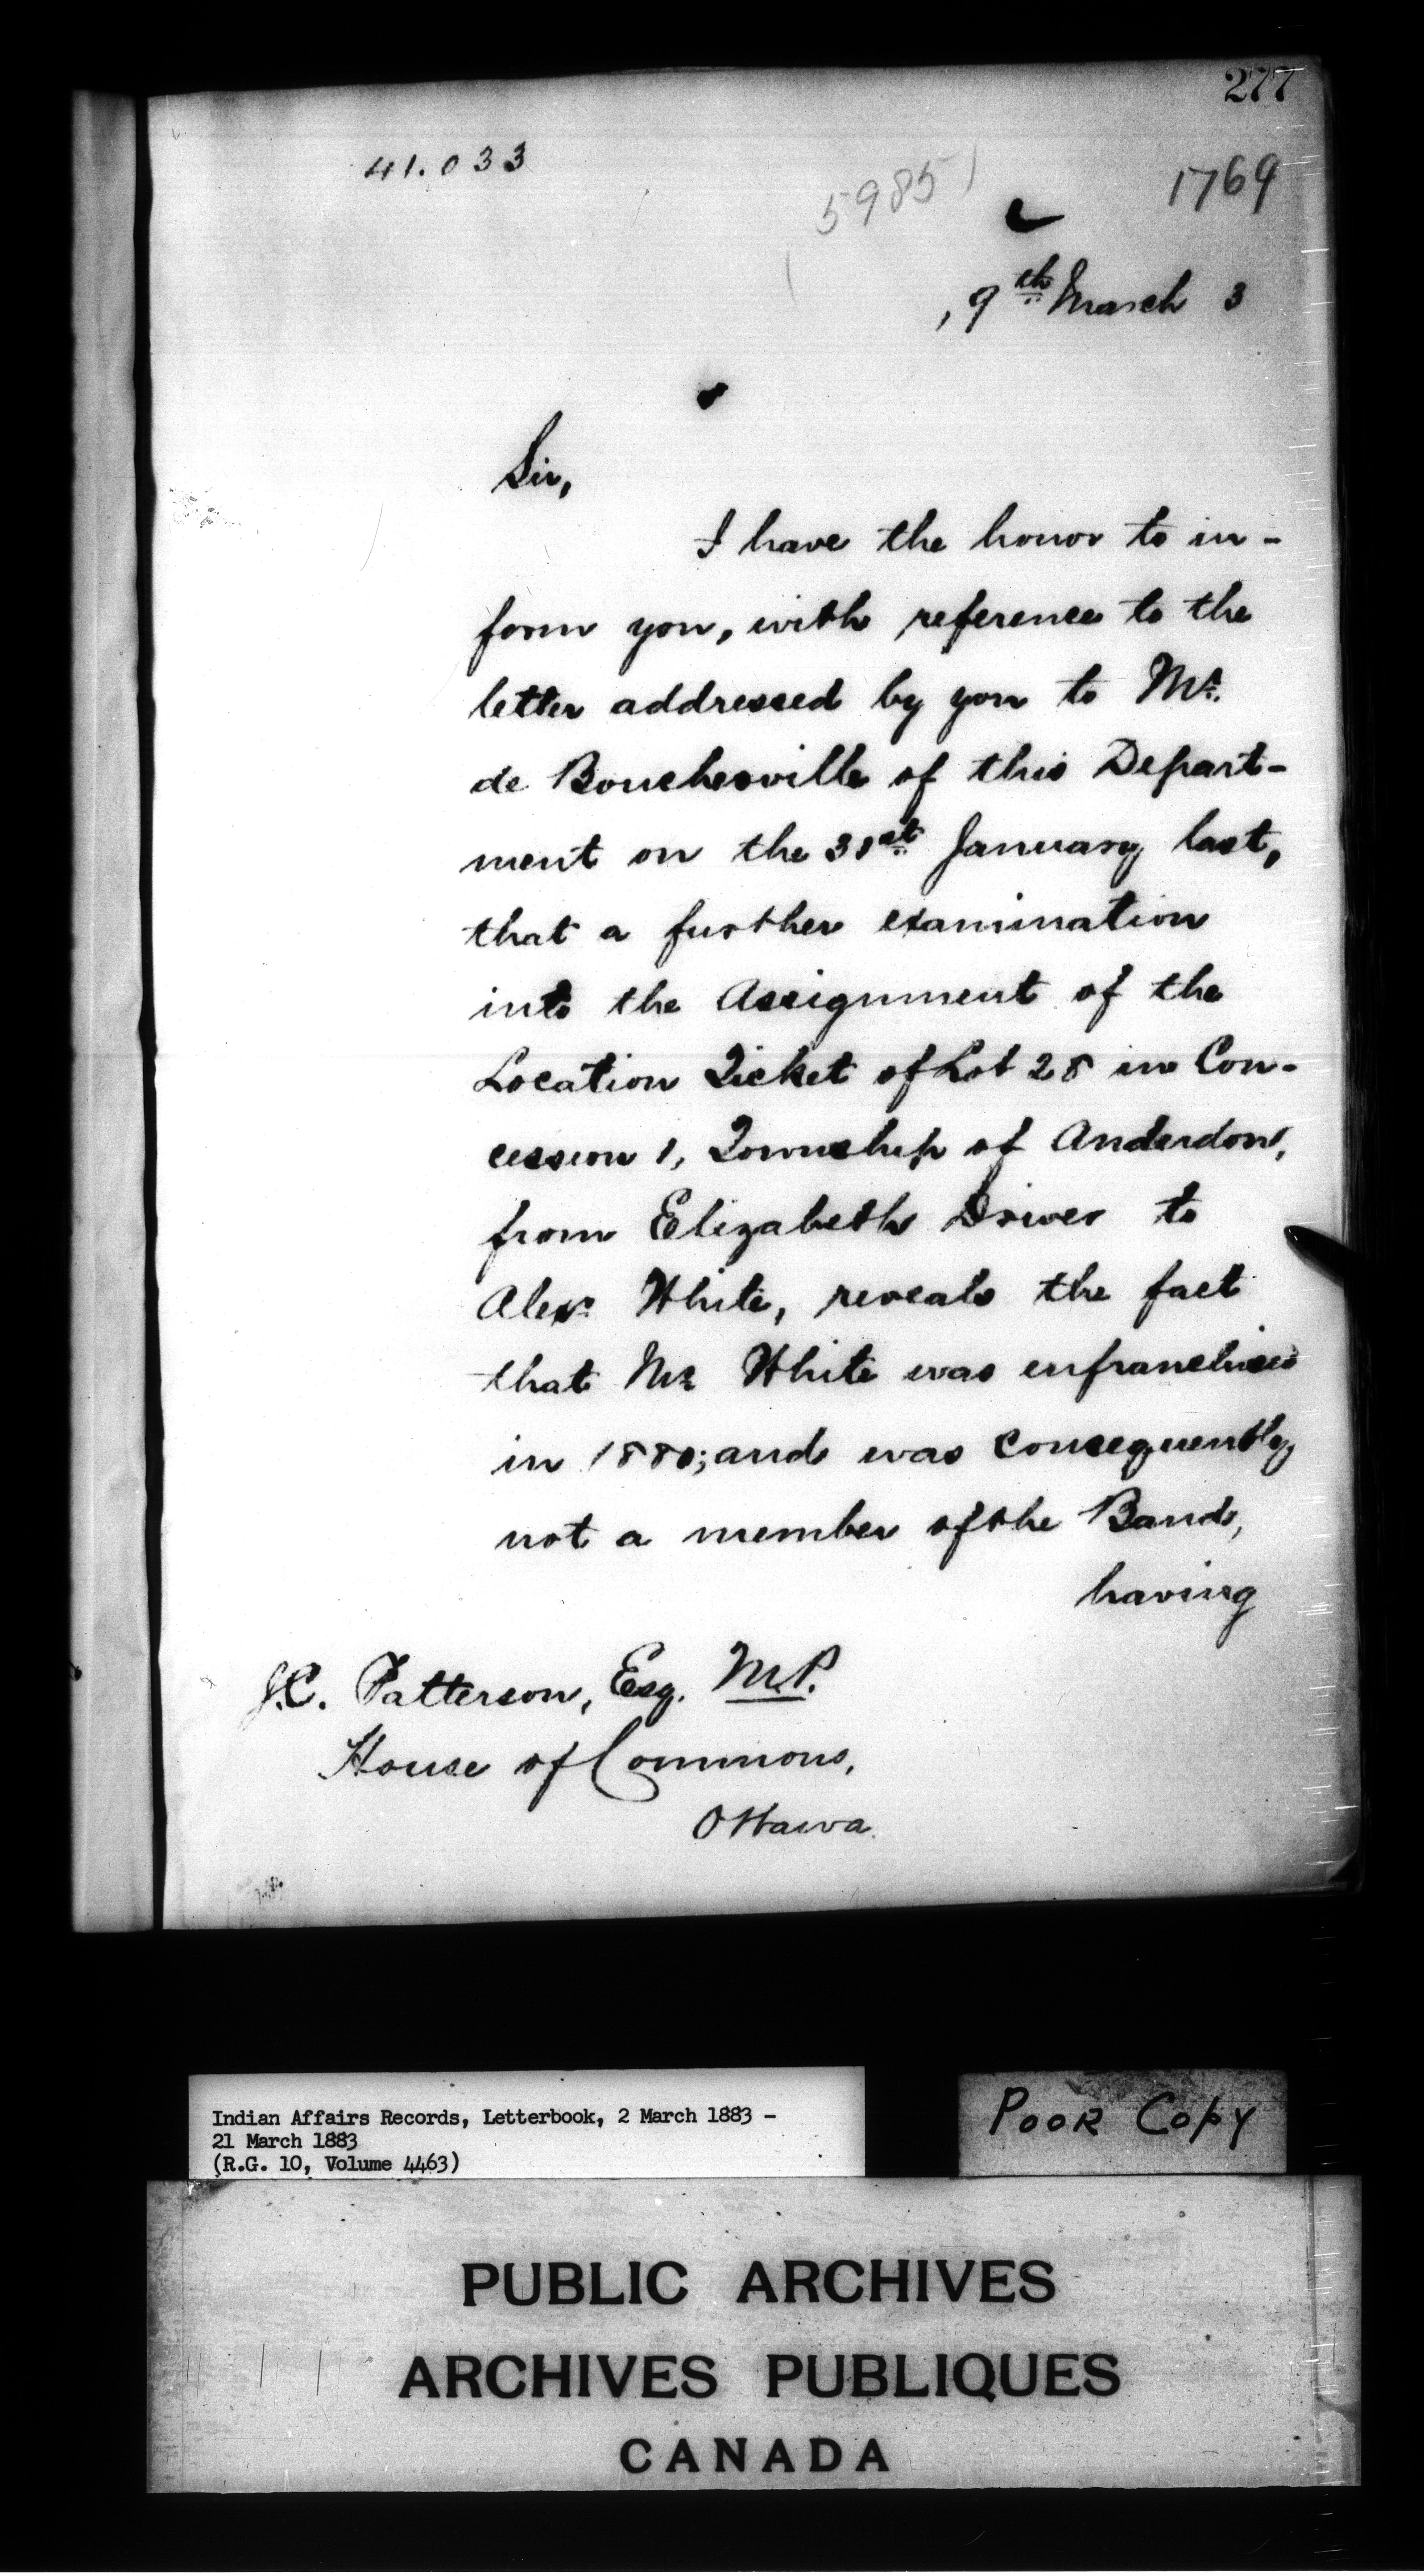 277
41.033
5985
1769
, 9th March 3
Sir,
I have the honor to in-
form you, with reference to the
letter addressed by you to Mr.
de Boucherville of this Depart-
ment on the 31st January last,
that a further examination
into the Assignment of the
Location Ticket of Lot 28 in Con-
cession 1, Township of Anderdon,
from Elizabeth Driver to
Alexr. White, reveals the fact
that Mr. White was enfranchised
in 1880; and was consequently
not a member of the Band,
having
J.C. Patterson, Esq. M.P.
House of Commons,
Ottawa.
Indian Affairs Records, Letterbook, 2 March 1883 -
21 March 1883
(R.G. 10, Volume 4463)
POOR COPY
PUBLIC ARCHIVES
ARCHIVES PUBLIQUES
CANADA